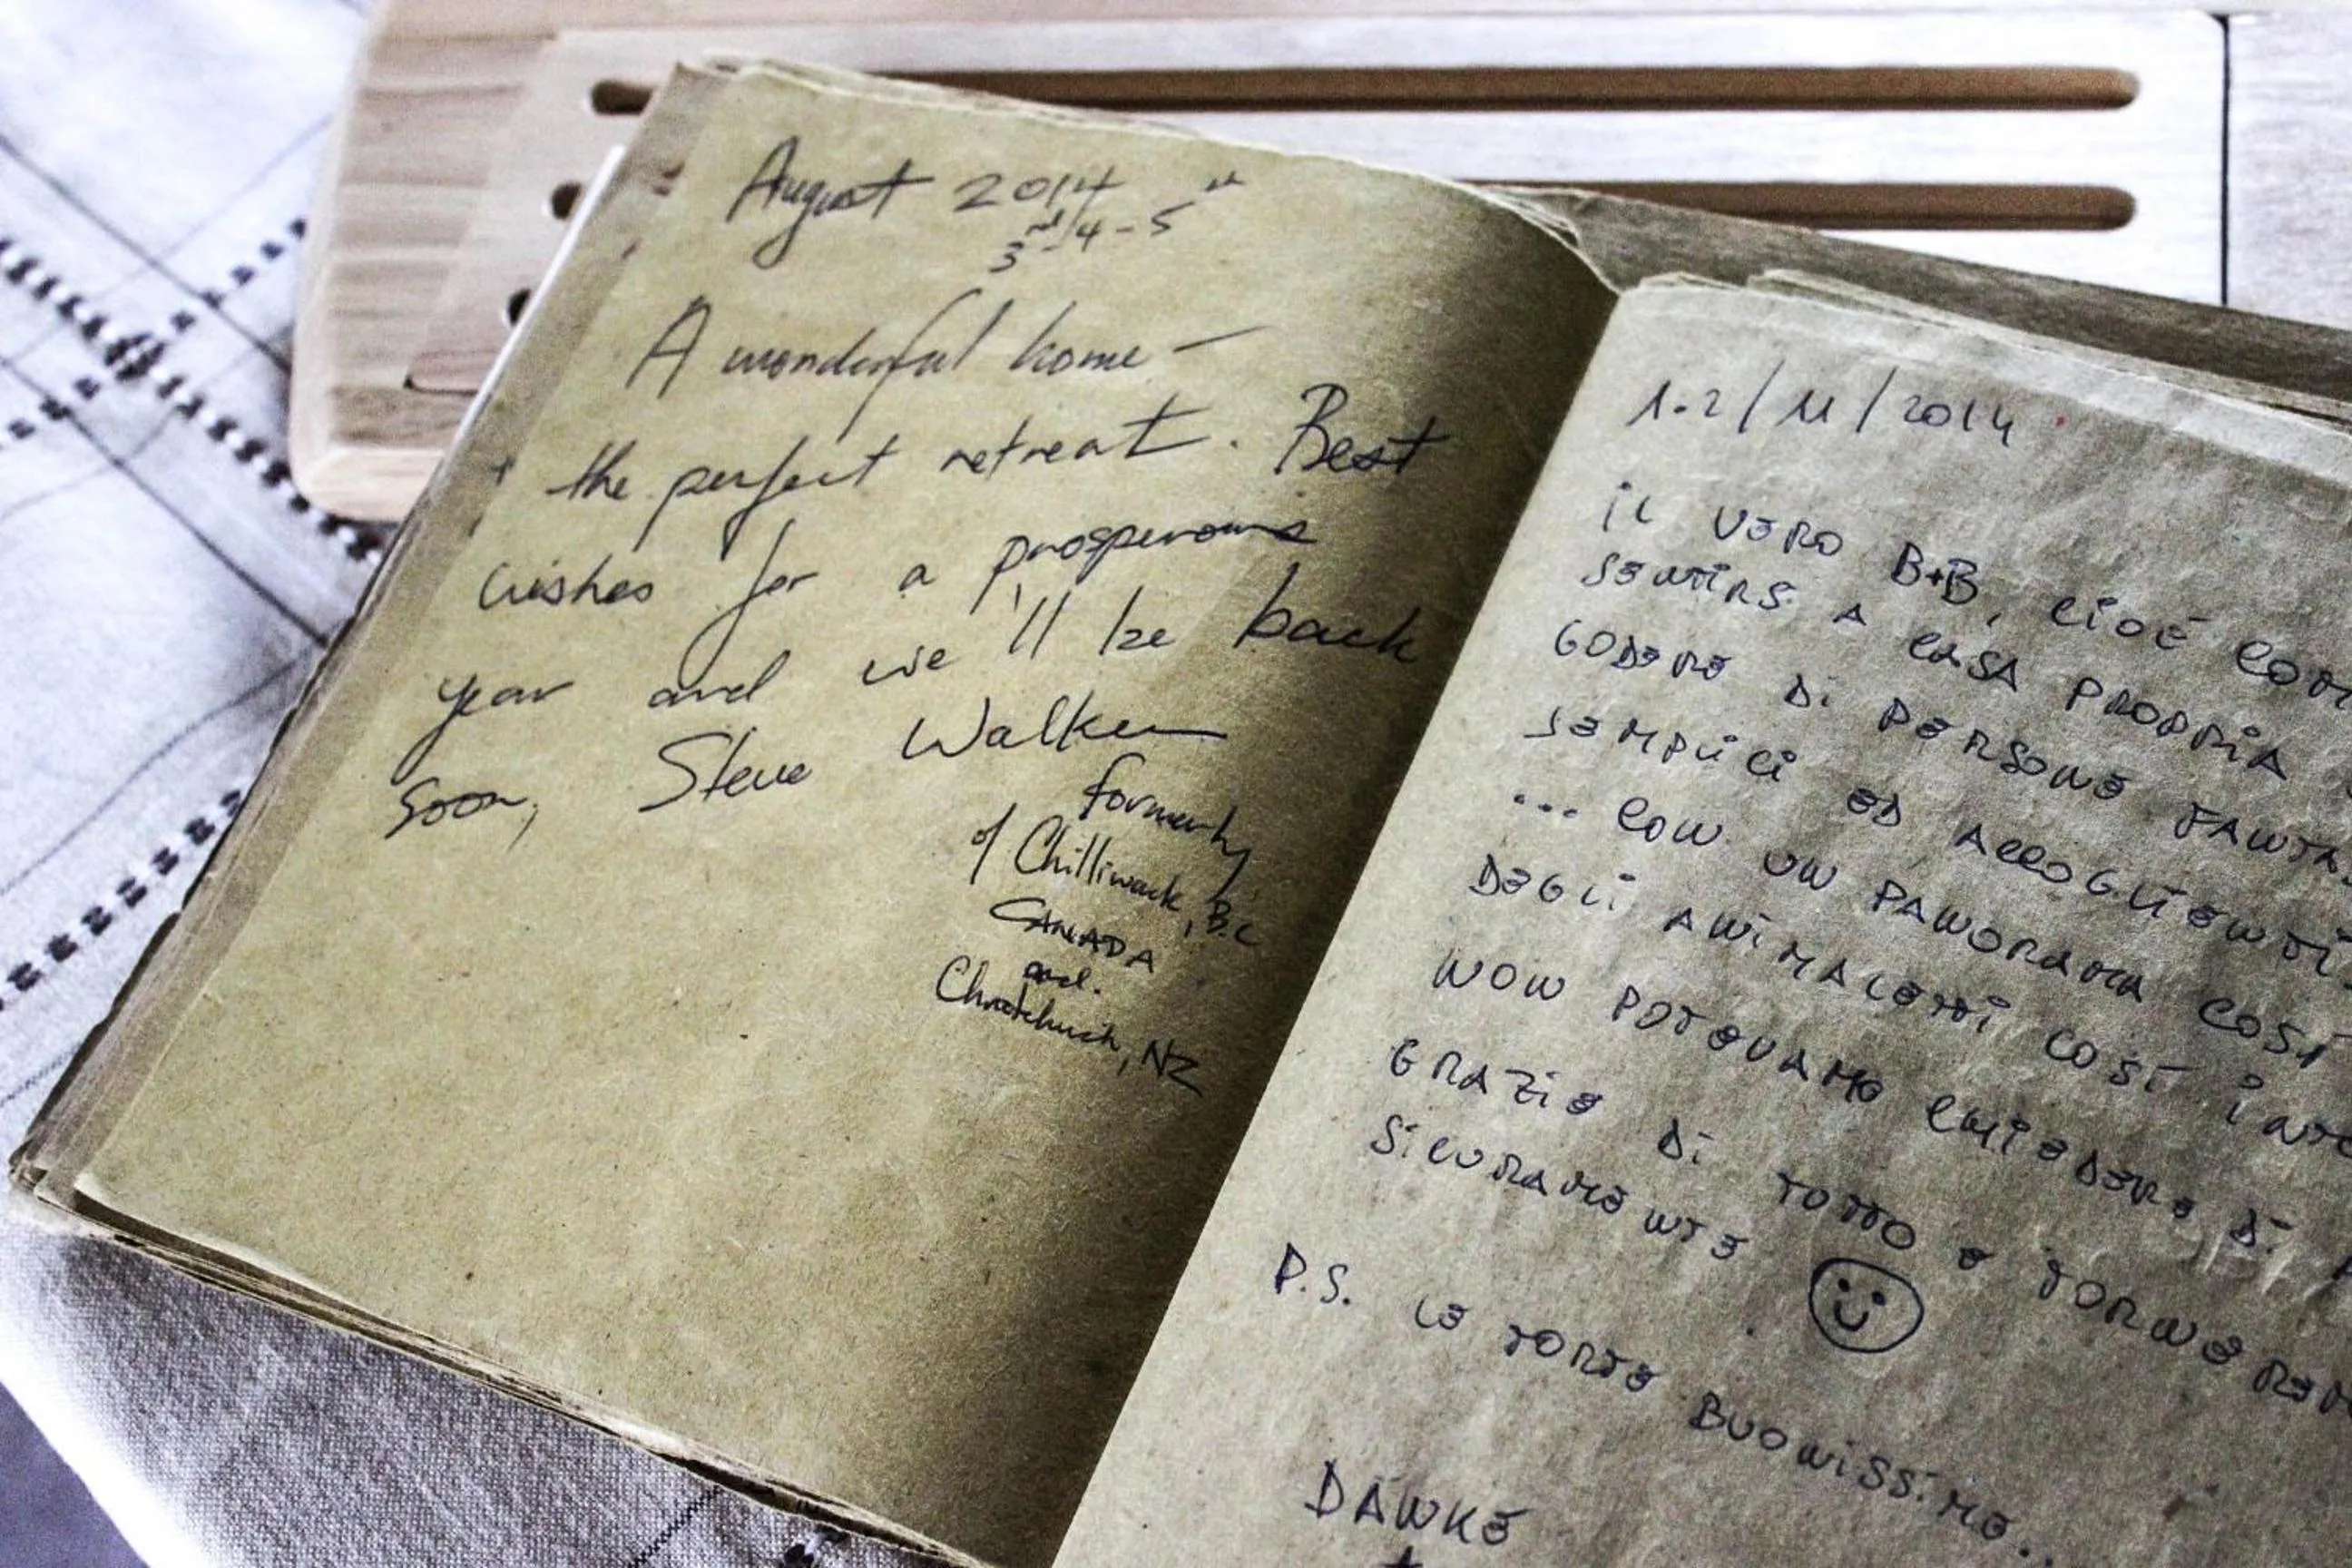 August 2014
3rd 4-5th
A wonderful home -
the perfect retreat. Best
wishes for a prosperous
year and we'll be back
soon, Steve Walker
formerly
of Chilliwack, B.C
CANADA
and.
Christchurch, NZ
1.2/11/2014
iL VERO B+B, CiOÈ COM
SENTIRS A CASA PROPRIA
GODERE Di PERSONE FANTA
SEMPLICI ED ACCOGLIENTI
... CON UN PANORAMA COSÌ
DEGLI ANIMALETTI COSÌ iNTE
NON POTEVAMO CHIEDERE Di
GRAZIE Di TUTTO E TORNEREM
SICURAMENTE
P.S. LE TORTE BUONISSIME..
DANKE